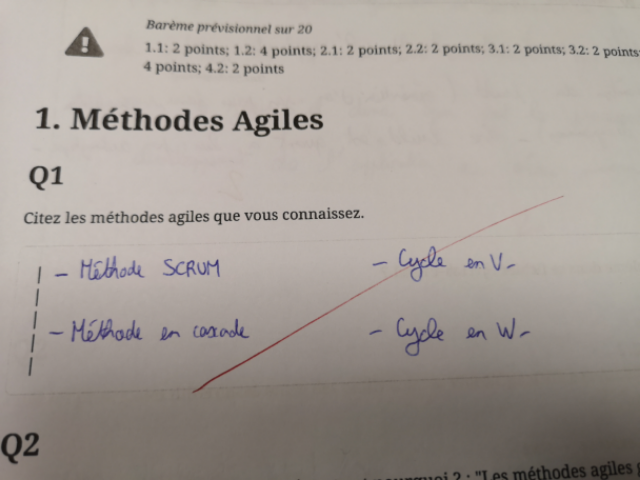 Barème prévisionnel sur 20
1.1: 2 points; 1.2: 4 points; 2.1: 2 points; 2.2: 2 points; 3.1: 2 points; 3.2: 2 points
4 points; 4.2: 2 points
1. Méthodes Agiles
Q1
Citez les méthodes agiles que vous connaissez.
- Méthode SCRUM
- Cycle en V-
- Méthode en cascade
- Cycle en W-
Q2
? : "Les méthodes agiles